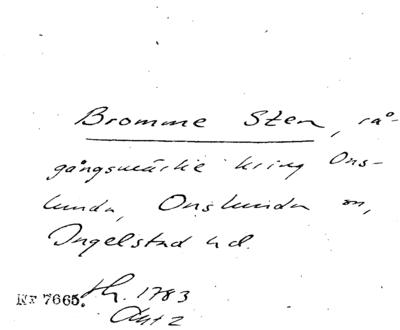 Bromme Sten, rå-
gångsmärke kring Ons-
lunda, Onslunda sn,
Ingelstad hd.
NF 7665. Hr. 1783
Akt 2